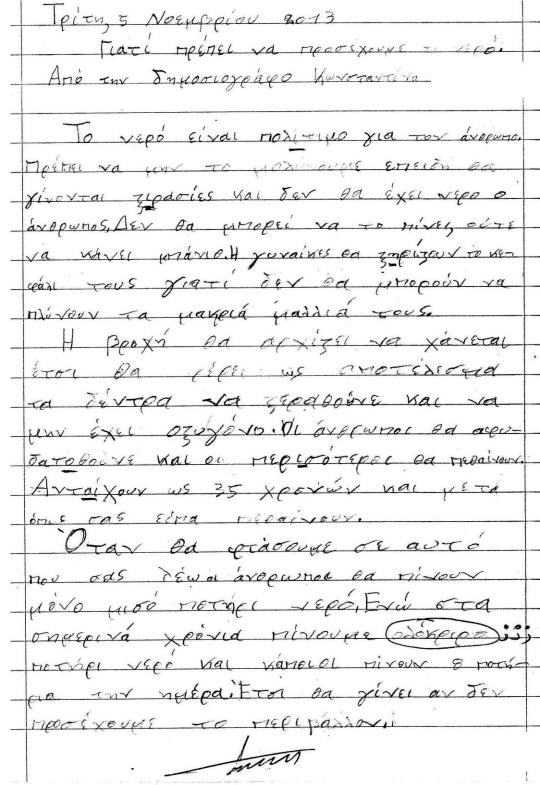 Τρίτη, 5 Νοεμβρίου 2013
Γιατί πρέπει να προσέχουμε το νερό.
Από την δημοσιογράφο Κωνσταντίνα
Το νερό είναι πολίτιμο για τον άνθρωπο.
Πρέπει να μην το μολύνουμε επειδή θα
γίνονται ξιρασίες και δεν θα έχει νερο ο
άνθρωπος. Δεν θα μπορεί να το πίνει, ούτε
να κάνει μπάνιο. Η γυναίκες θα ξηρίζουν το κε-
φάλι τους γιατί δεν θα μπορούν να
πλύνουν τα μακριά μαλλιά τους.
Η βροχή θα αρχίζει να χάνεται
έτσι θα φέρει ως αποτέλεσμα
τα δέντρα να ξεραθούνε και να
μην έχει οξυγόνο. Οι άνθρωποι θα αφυ-
δατοθούνε και οι περισότεροι θα πεθαίνουν.
Ανταίχουν ως 35 χρενών και μετά
όπως σας είπα πεθαίνουν.
Όταν θα φτάσουμε σε αυτό
που σας λέω οι άνθρωποι θα πίνουν
μόνο μισό ποτήρι νερό, Ενώ στα
σημερινά χρόνια πίνουμε ολόκριρο
ποτήρι νερό και κάποιοι πίνουν 8 ποτή-
ρια την ημέρα. Έτσι θα γίνει αν δεν
προσέχουμε το περιβάλλον..